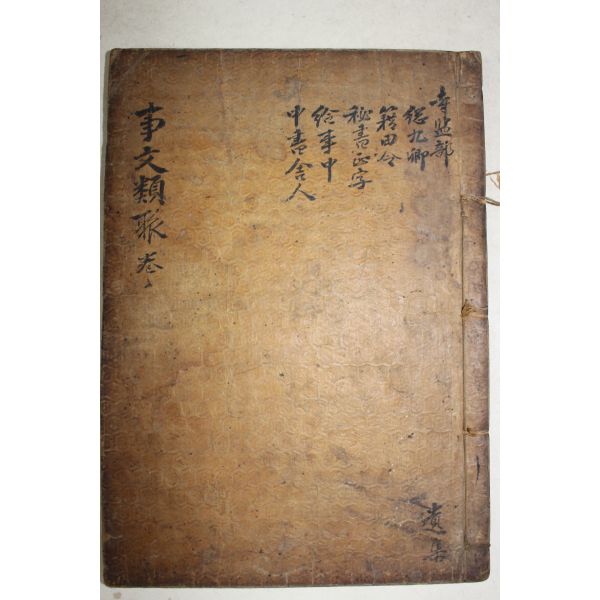 寺監部
総九卿
籍田令
秘書正字
給事中
中書舍人
遺集
事文類聚卷